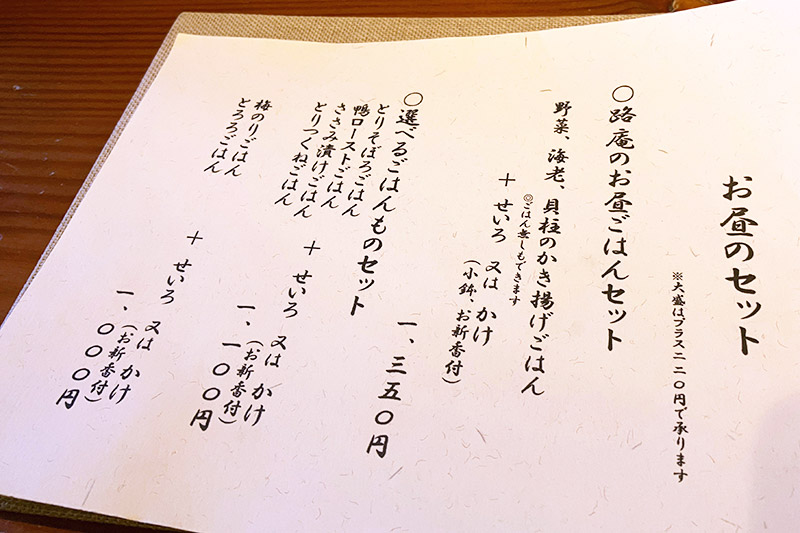 お昼のセット
※大盛はプラス二二〇円で承ります
〇路庵のお昼ごはんセット
野菜、海老、貝柱のかき揚げごはん
◎ごはん無しもできます
＋ せいろ 又は かけ
（小鉢、お新香付）
一、三五〇円
〇選べるごはんものセット
とりそぼろごはん
鴨ローストごはん
ささみ漬けごはん
とりつくねごはん
＋ せいろ 又は かけ
（お新香付）
一、一〇〇円
梅のりごはん
とろろごはん
＋ せいろ 又は かけ
（お新香付）
一、〇〇〇円